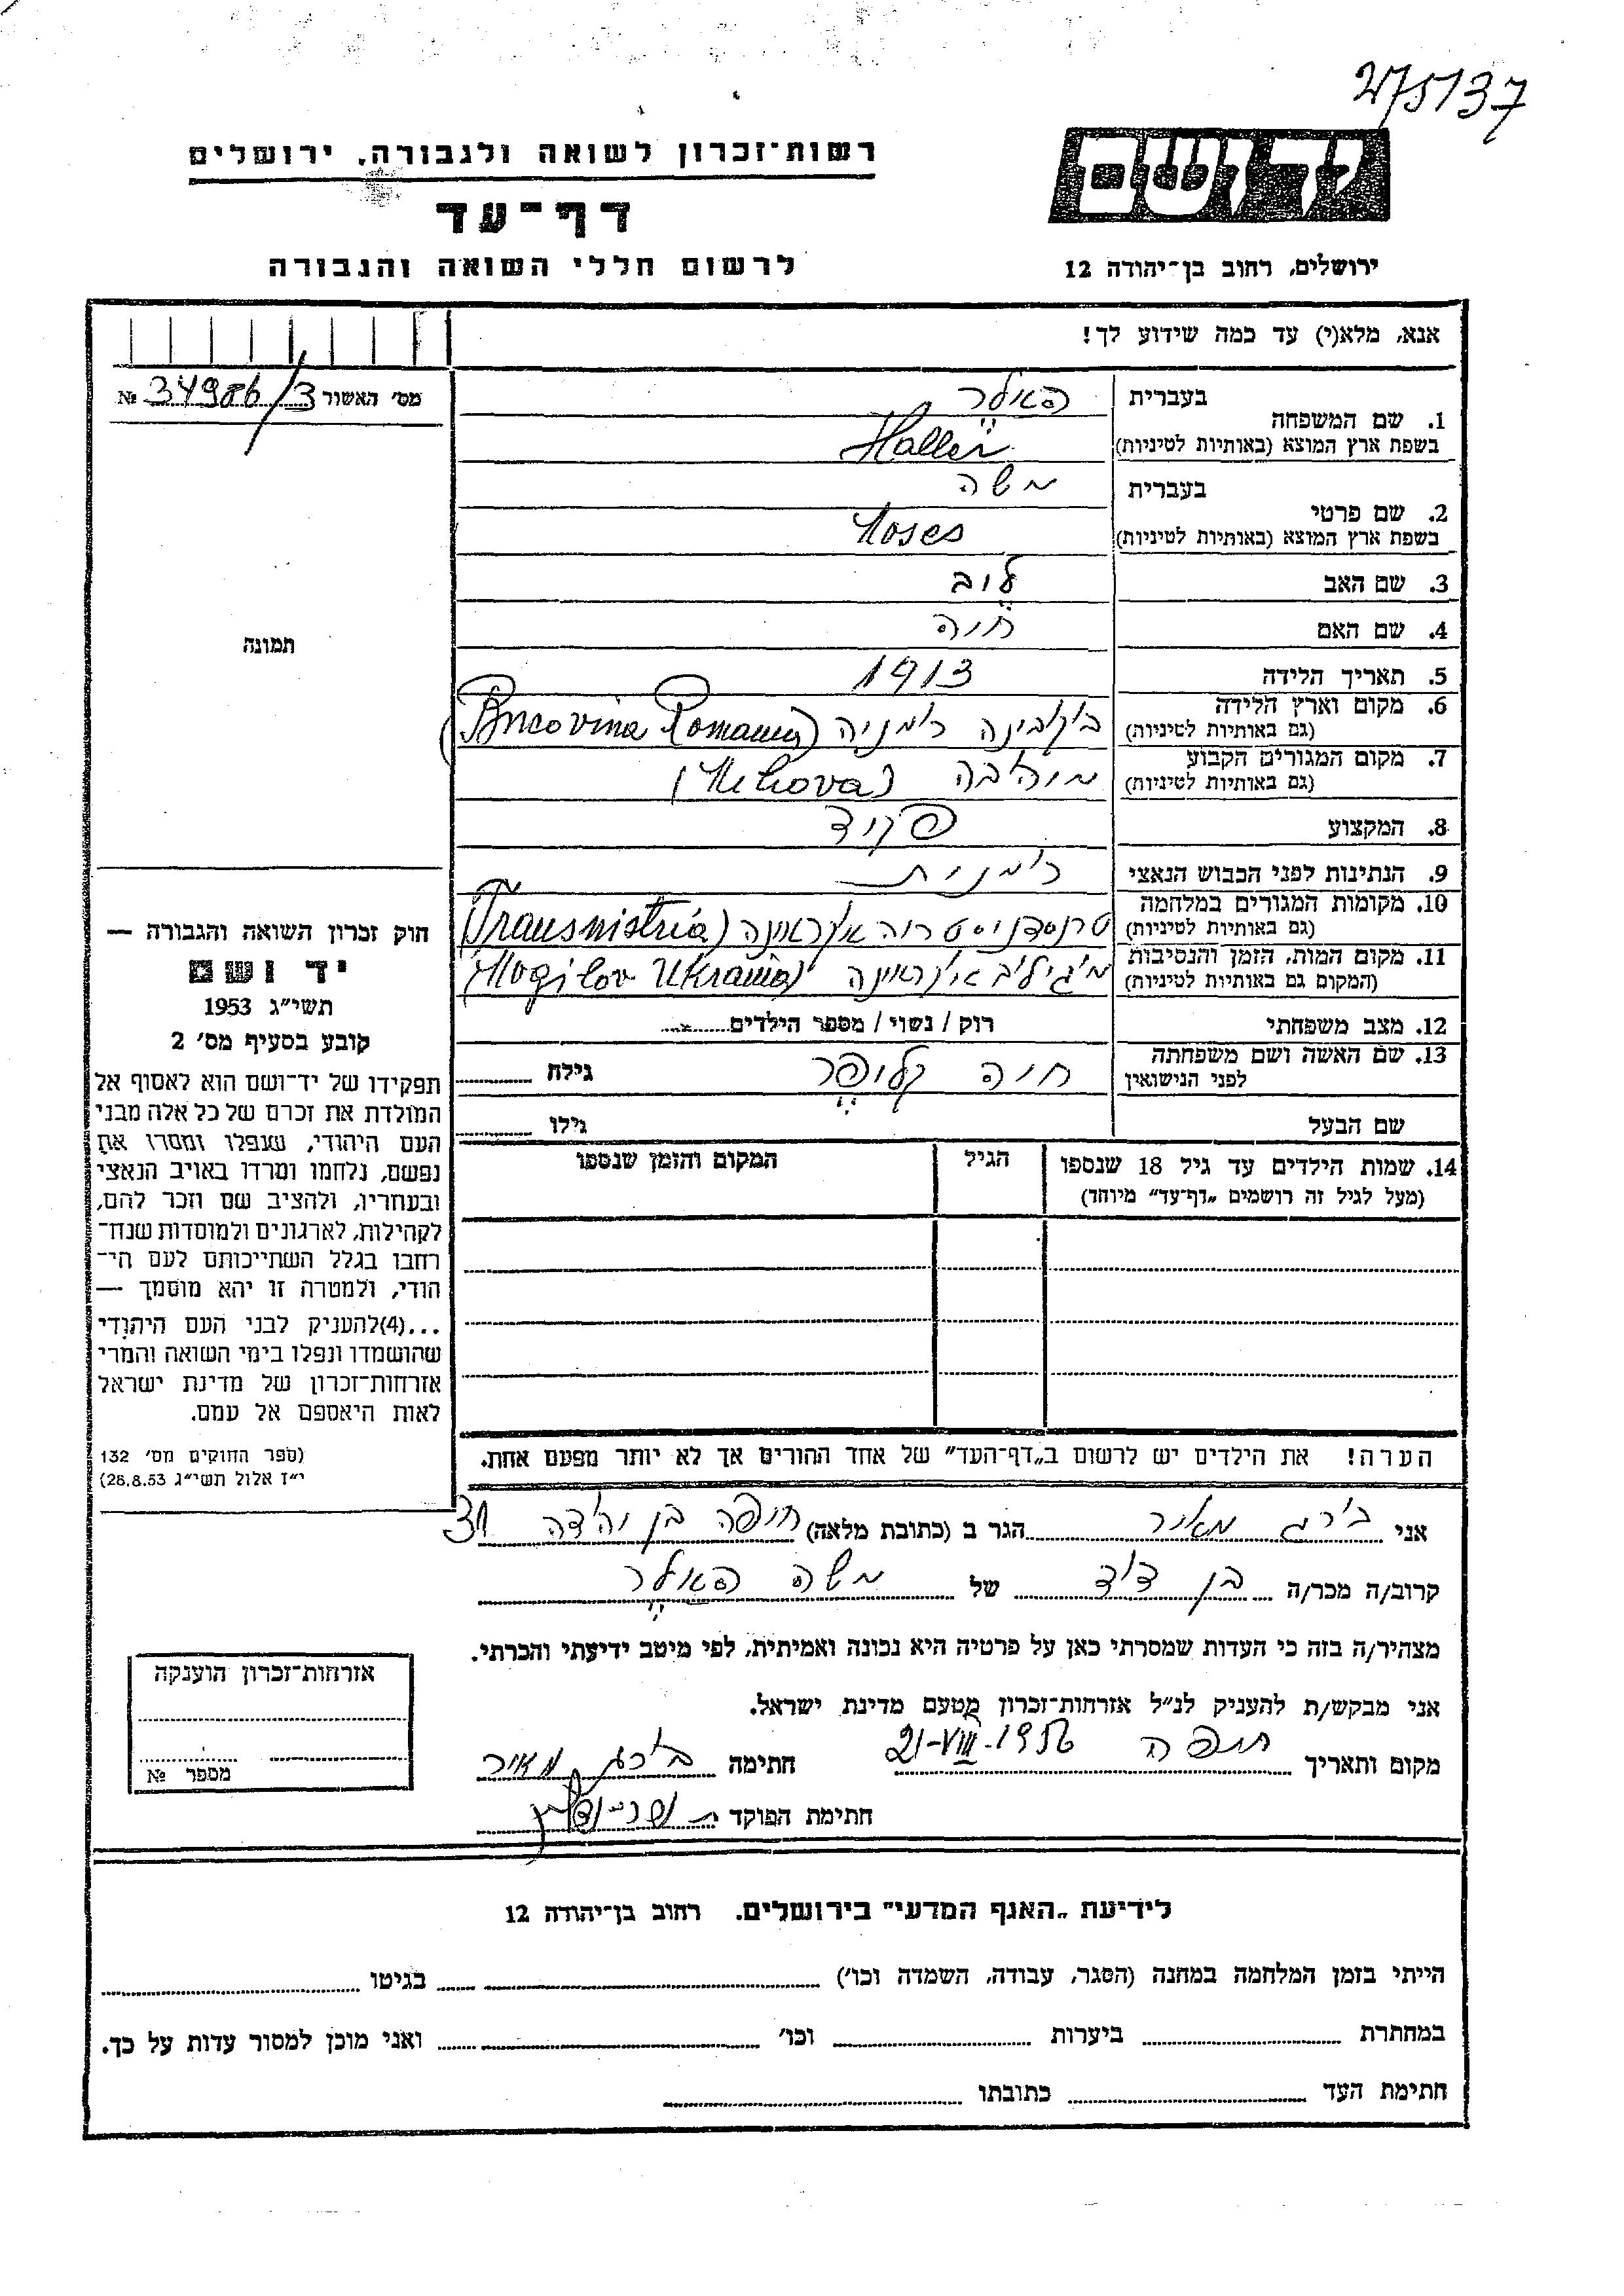 275137
רשות־זכרון לשואה ולגבורה, ירושלים
יד ושם
דף־עד
ירושלים, רחוב בן־יהודה 12
לרשום חללי השואה והגבורה
אנא, מלא(י) עד כמה שידוע לך!
מס׳ האשור 34986/3 №
1. שם המשפחה
בעברית האלר
בשפת ארץ המוצא (באותיות לטיניות) Haller
2. שם פרטי
בעברית משה
בשפת ארץ המוצא (באותיות לטיניות) Moses
3. שם האב ליב
4. שם האם חיה
5. תאריך הלידה 1913
6. מקום וארץ הלידה
(גם באותיות לטיניות) בוקובינה רומניה (Bucovina Romania)
7. מקום המגורים הקבוע
(גם באותיות לטיניות)
8. המקצוע פקיד
9. הנתינות לפני הכבוש הנאצי רומנית
10. מקומות המגורים במלחמה
(גם באותיות לטיניות) (Transnistria)
11. מקום המות, הזמן והנסיבות
(המקום גם באותיות לטיניות) (Mogilov Ukrania)
12. מצב משפחתי רוק / נשוי / מספר הילדים
13. שם האשה ושם משפחתה
לפני הנישואין חיה קליפר גילה
שם הבעל גילו
14. שמות הילדים עד גיל 18 שנספו
(מעל לגיל זה רושמים „דף־עד” מיוחד)
הגיל
המקום והזמן שנספו
הערה! את הילדים יש לרשום ב„דף־העד” של אחד ההורים אך לא יותר מפעם אחת.
תמונה
חוק זכרון השואה והגבורה —
יד ושם
תשי״ג 1953
קובע בסעיף מס׳ 2
תפקידו של יד־ושם הוא לאסוף אל
המולדת את זכרם של כל אלה מבני
העם היהודי, שנפלו ומסרו את
נפשם, נלחמו ומרדו באויב הנאצי
ובעוזריו, ולהציב שם וזכר להם,
לקהילות, לארגונים ולמוסדות שנח־
רבו בגלל השתייכותם לעם הי־
הודי, ולמטרה זו יהא מוסמך —
...(4)להעניק לבני העם היהודי
שהושמדו ונפלו בימי השואה והמרי
אזרחות־זכרון של מדינת ישראל
לאות היאספם אל עמם.
(ספר החוקים מס׳ 132
י״ז אלול תשי״ג 28.8.53)
אני בירג מאיר הגר ב (כתובת מלאה) חיפה בן יהודה 31
קרוב/ה מכר/ה בן דוד של משה האלר
מצהיר/ה בזה כי העדות שמסרתי כאן על פרטיה היא נכונה ואמיתית, לפי מיטב ידיעתי והכרתי.
אני מבקש/ת להעניק לנ״ל אזרחות־זכרון מטעם מדינת ישראל.
מקום ותאריך חיפה 21-VIII-1956 חתימה בירג מאיר
חתימת הפוקד
אזרחות־זכרון הוענקה
מספר №
לידיעת „האגף המדעי” בירושלים, רחוב בן־יהודה 12
הייתי בזמן המלחמה במחנה (הסגר, עבודה, השמדה וכו׳) בגיטו
במחתרת ביערות וכו׳ ואני מוכן למסור עדות על כך.
חתימת העד כתובתו